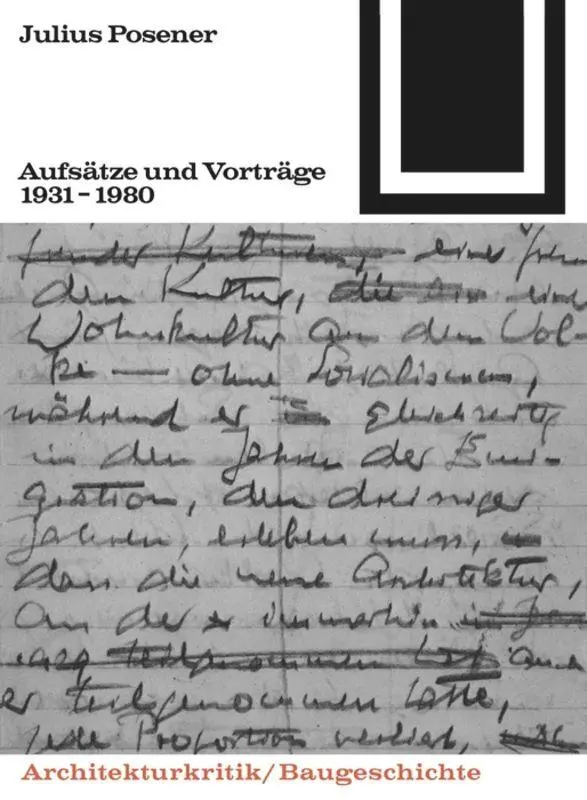 Julius Posener
Aufsätze und Vorträge
1931 – 1980
fremder Kulturen, einer frem
den Kultur, die eine
Wohnkultur an dem Vol-
ke — ohne Sozialismus,
während er gleichzeitig
in den Jahren der Emi-
gration, den dreissiger
Jahren, erleben muss,
dass die neue Architektur,
an der er immerhin
1929 teilgenommen
er teilgenommen hatte,
jede Proportion verliert,
Architekturkritik/Baugeschichte